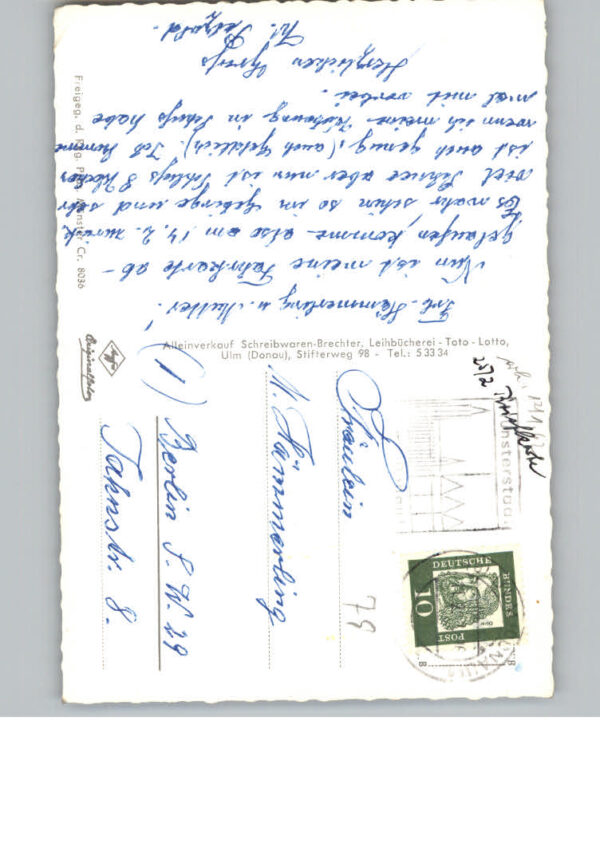 Frl. Hämmerling u. Mutter!
Nun ist meine Fahrkarte ab-
gelaufen, komme also am 14.2. zurück
Es war schön so im Gebirge und sehr
viel Schnee aber nun ist Schluß
ist auch genug, (auch Geldlich). Ich komme
wenn ich meine Wohnung in Schuß habe
mal mit vorbei.
Herzlichen Gruß
Frl. Petzold.
Freigeg. d. Reg. Präs. Münster Cr. 8036
Agfa
Originalfoto
Alleinverkauf Schreibwaren-Brechter, Leihbücherei - Toto - Lotto,
Ulm (Donau), Stifterweg 98 - Tel.: 5 33 34
Fräulein
M. Hämmerling
(1) Berlin S.W. 29
Jahnstr. 8.
79
DEUTSCHE
BUNDES
POST
10